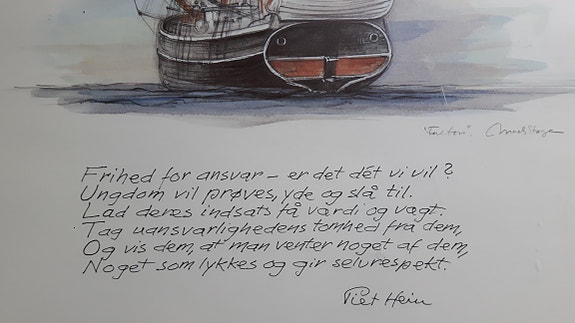 Frihed for ansvar – er det dét vi vil?
Ungdom vil prøves, yde og slå til.
Lad deres indsats få værdi og vægt.
Tag uansvarlighedens tomhed fra dem,
Og vis dem, at man venter noget af dem,
Noget som lykkes og gir selvrespekt.
Piet Hein